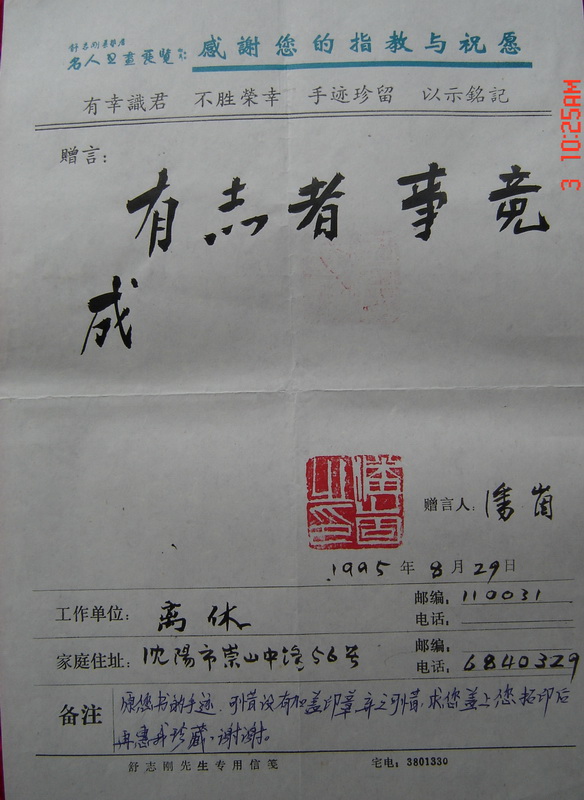 舒志刚袭藝屋
名人墨画展覽 感謝您的指教与祝愿
有幸識君 不胜榮幸 手迹珍留 以示銘記
3 10:25AM
赠言:
有志者事竟
成
赠言人: 潘崗
1995年8月29日
工作单位: 离休 邮编: 110031
电话:
家庭住址: 沈陽市崇山中路56号 邮编:
电话: 6840329
备注 您书的手迹,可惜没有加盖印章弃之可惜,求您盖上您招印后
再惠我珍藏、谢谢。
舒志刚先生专用信笺 宅电: 3801330